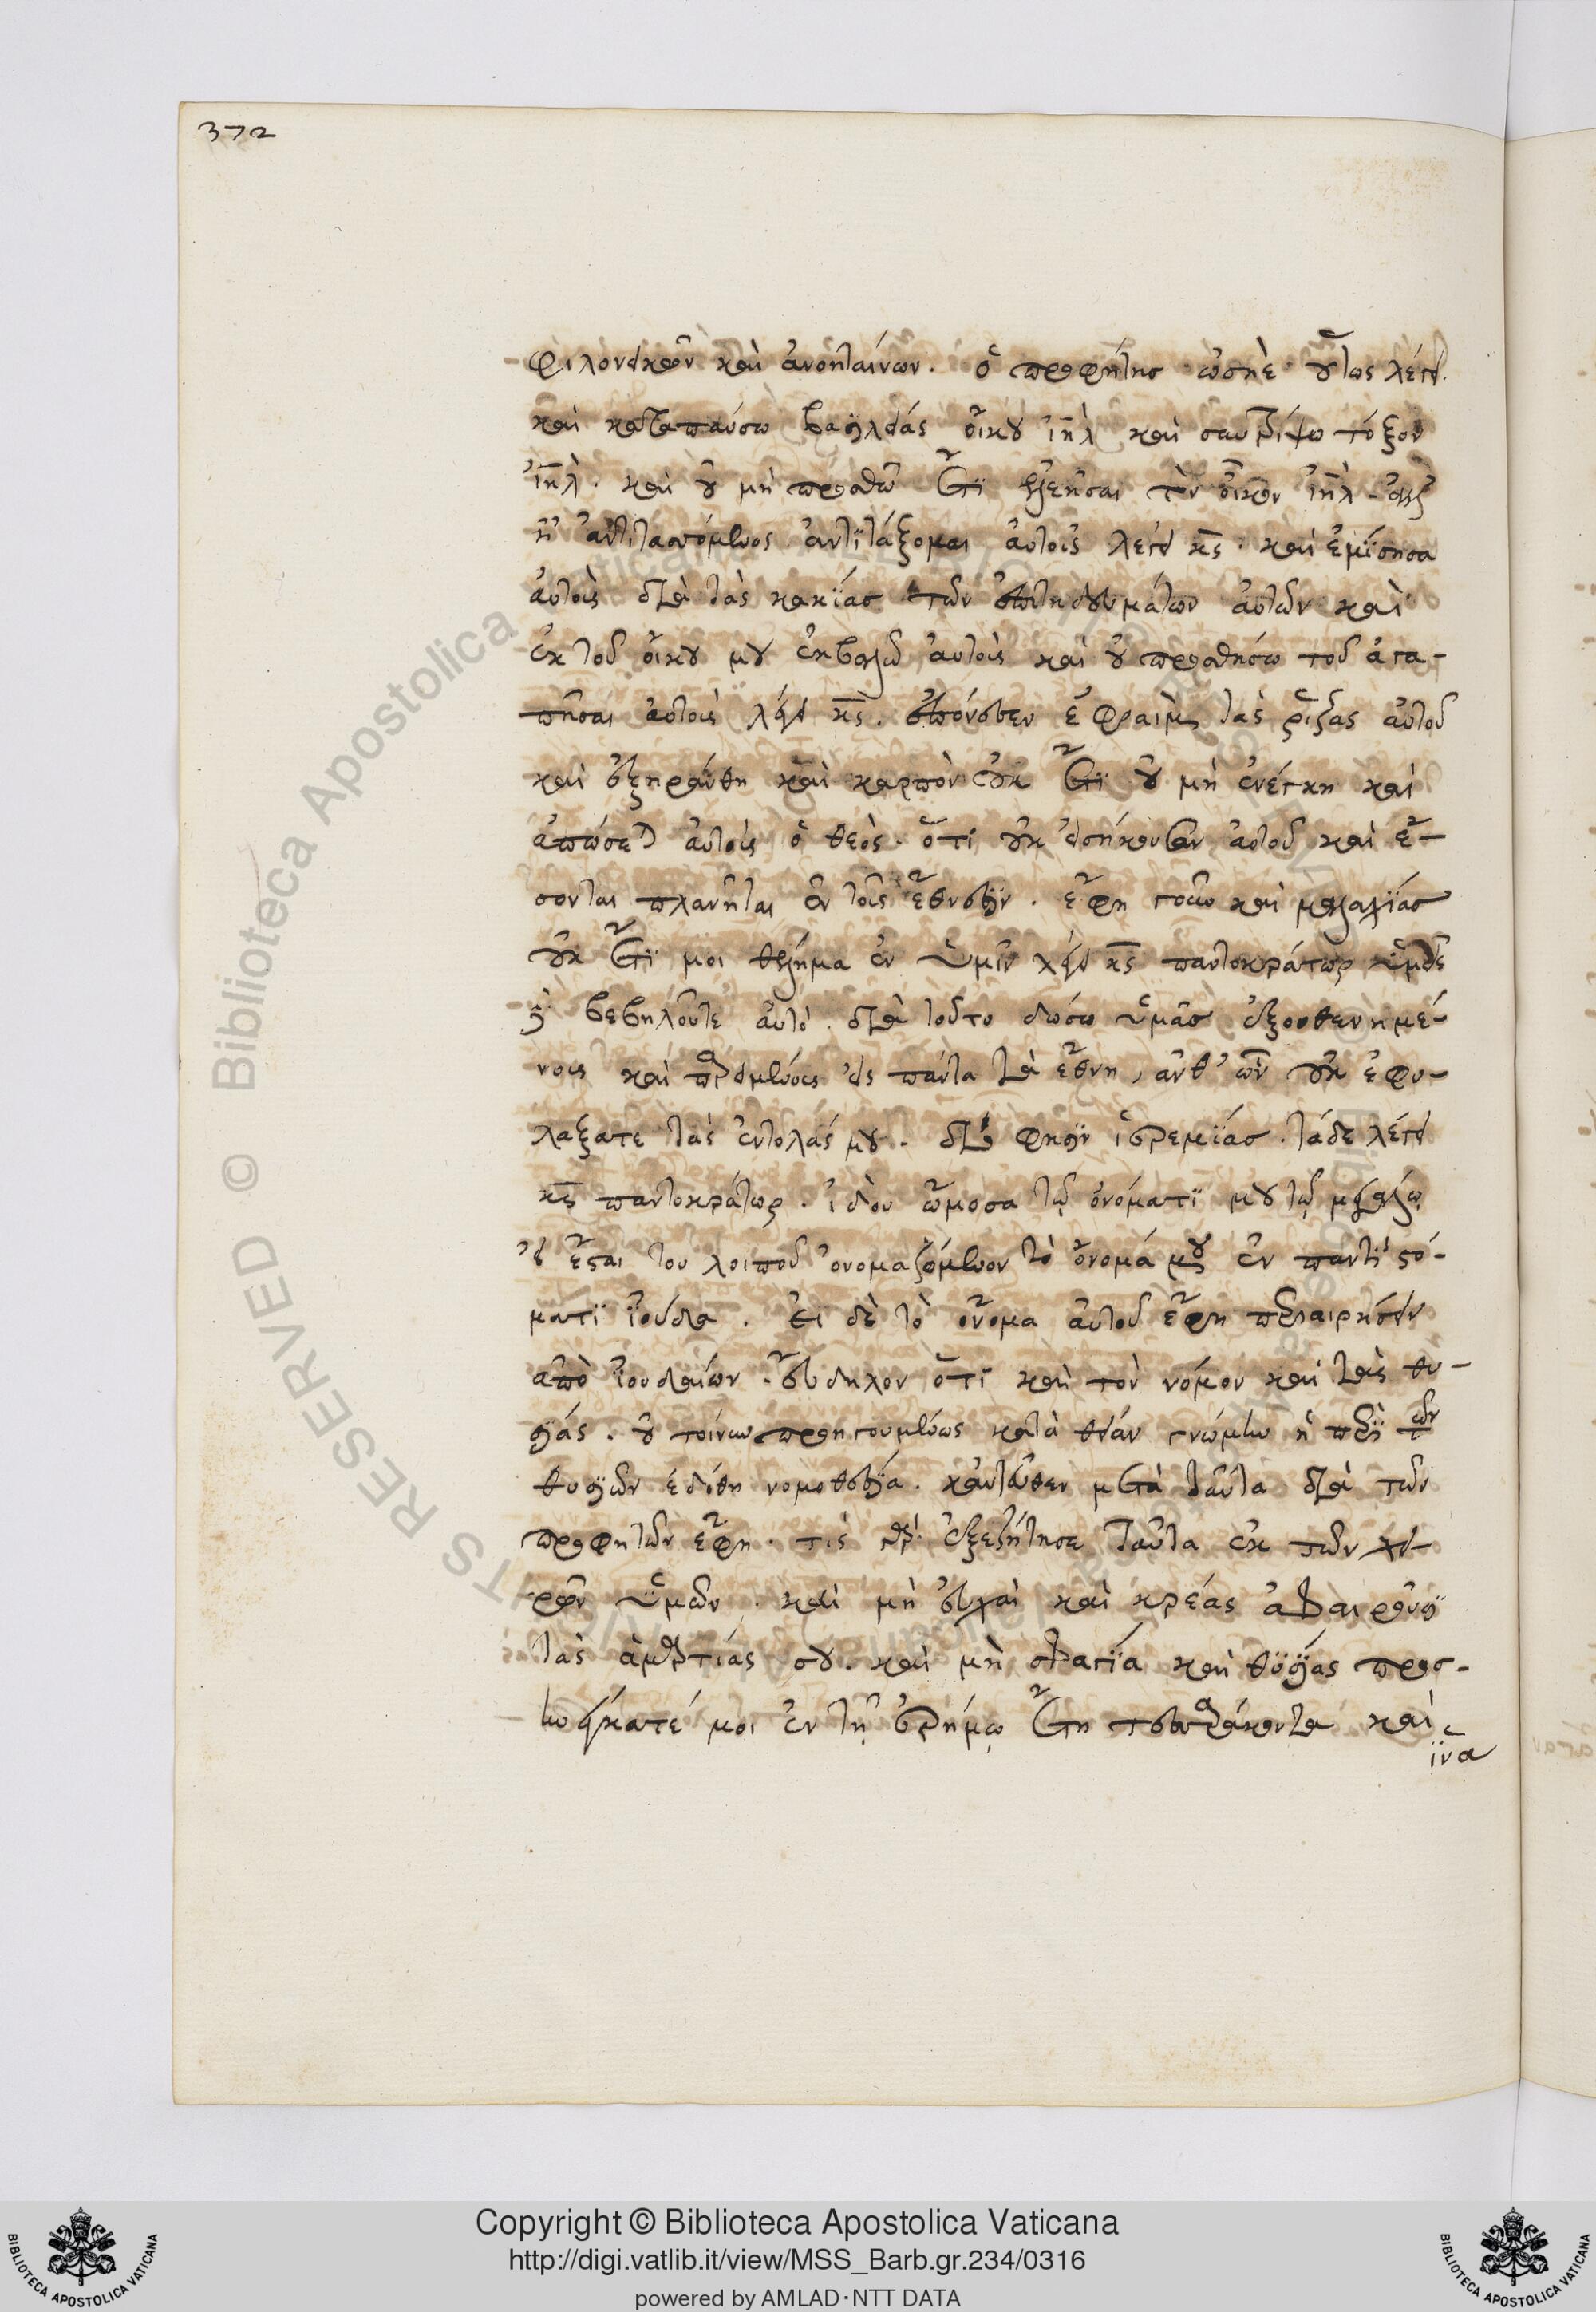 372
φιλονεικῶν καὶ ἀνοηταίνων. ὁ προφήτης ὠσηὲ οὕτως λέγει.
καὶ καταπαύσω βασιλείας οἴκου ἰηλ καὶ συντρίψω τόξον
ἰηλ. καὶ οὐ μὴ προσθῶ ἔτι ἐλεῆσαι τὸν οἶκον ἰηλ. ἀλλ'
ἢ ἀντιτασσόμενος ἀντιτάξομαι αὐτοῖς λέγει κς. καὶ ἐμίσησα
αὐτοὺς διὰ τὰς κακίας τῶν ἐπιτηδευμάτων αὐτῶν καὶ
ἐκ τοῦ οἴκου μου ἐκβαλῶ αὐτοὺς καὶ οὐ προσθήσω τοῦ ἀγα-
πῆσαι αὐτοὺς λέγει κς. ἐπόνεσεν ἐφραὶμ τὰς ῥίζας αὐτοῦ
καὶ ἐξηράνθη καὶ καρπὸν οὐκ ἔτι οὐ μὴ ἐνέγκη καὶ
ἀπώσεται αὐτοὺς ὁ θεὸς. ὅτι οὐκ εἰσήκουσαν αὐτοῦ καὶ ἔ-
σονται πλανῆται ἐν τοῖς ἔθνεσιν. ἔφη γοῦν καὶ μαλαχίας
οὐκ ἔτι μοι θέλημα ἐν ὑμῖν λέγει κς παντοκράτωρ ὑμεῖς
βεβηλοῦτε αὐτό. διὰ τοῦτο δώσω ὑμᾶς ἐξουθενημέ-
νους καὶ παρειμένους εἰς πάντα τὰ ἔθνη, ἀνθ' ὧν οὐκ ἐφυ-
λάξατε τὰς ἐντολάς μου. διό φησιν ἱερεμίας. τάδε λέγει
κς παντοκράτωρ. ἰδου ὤμοσα τῷ ὀνόματι μου τῷ μεγάλῳ
εἰ ἔσται του λοιποῦ ὀνομαζόμενον τὸ ὄνομά μου ἐν παντὶ στό-
ματι ἰούδα. εἰ δὲ τὸ ὄνομα αὐτοῦ ἔφη περιαιρήσειν
ἀπὸ ἰουδαίων. εὔδηλον ὅτι καὶ τὸν νόμον καὶ τὰς θυ-
σίας. οὐ τοίνυν προηγουμένως κατὰ θείαν γνώμην ἡ περὶ τῶν
θυσιῶν ἐδόθη νομοθεσία. κἀντεῦθεν μετὰ ταῦτα διὰ τῶν
προφητῶν ἔφη. τίς γὰρ ἐξεζήτησε ταῦτα ἐκ τῶν χει-
ρῶν ὑμῶν. καὶ μὴ εὐχαὶ καὶ κρέας ἀφαιροῦσι
τὰς ἁμαρτίας σου. καὶ μὴ σφαγία καὶ θυσίας προσ-
ηνέγκατέ μοι ἐν τῇ ἐρήμῳ ἔτη τεσσαράκοντα καὶ
ἵνα
Copyright © Biblioteca Apostolica Vaticana
http://digi.vatlib.it/view/MSS_Barb.gr.234/0316
powered by AMLAD·NTT DATA